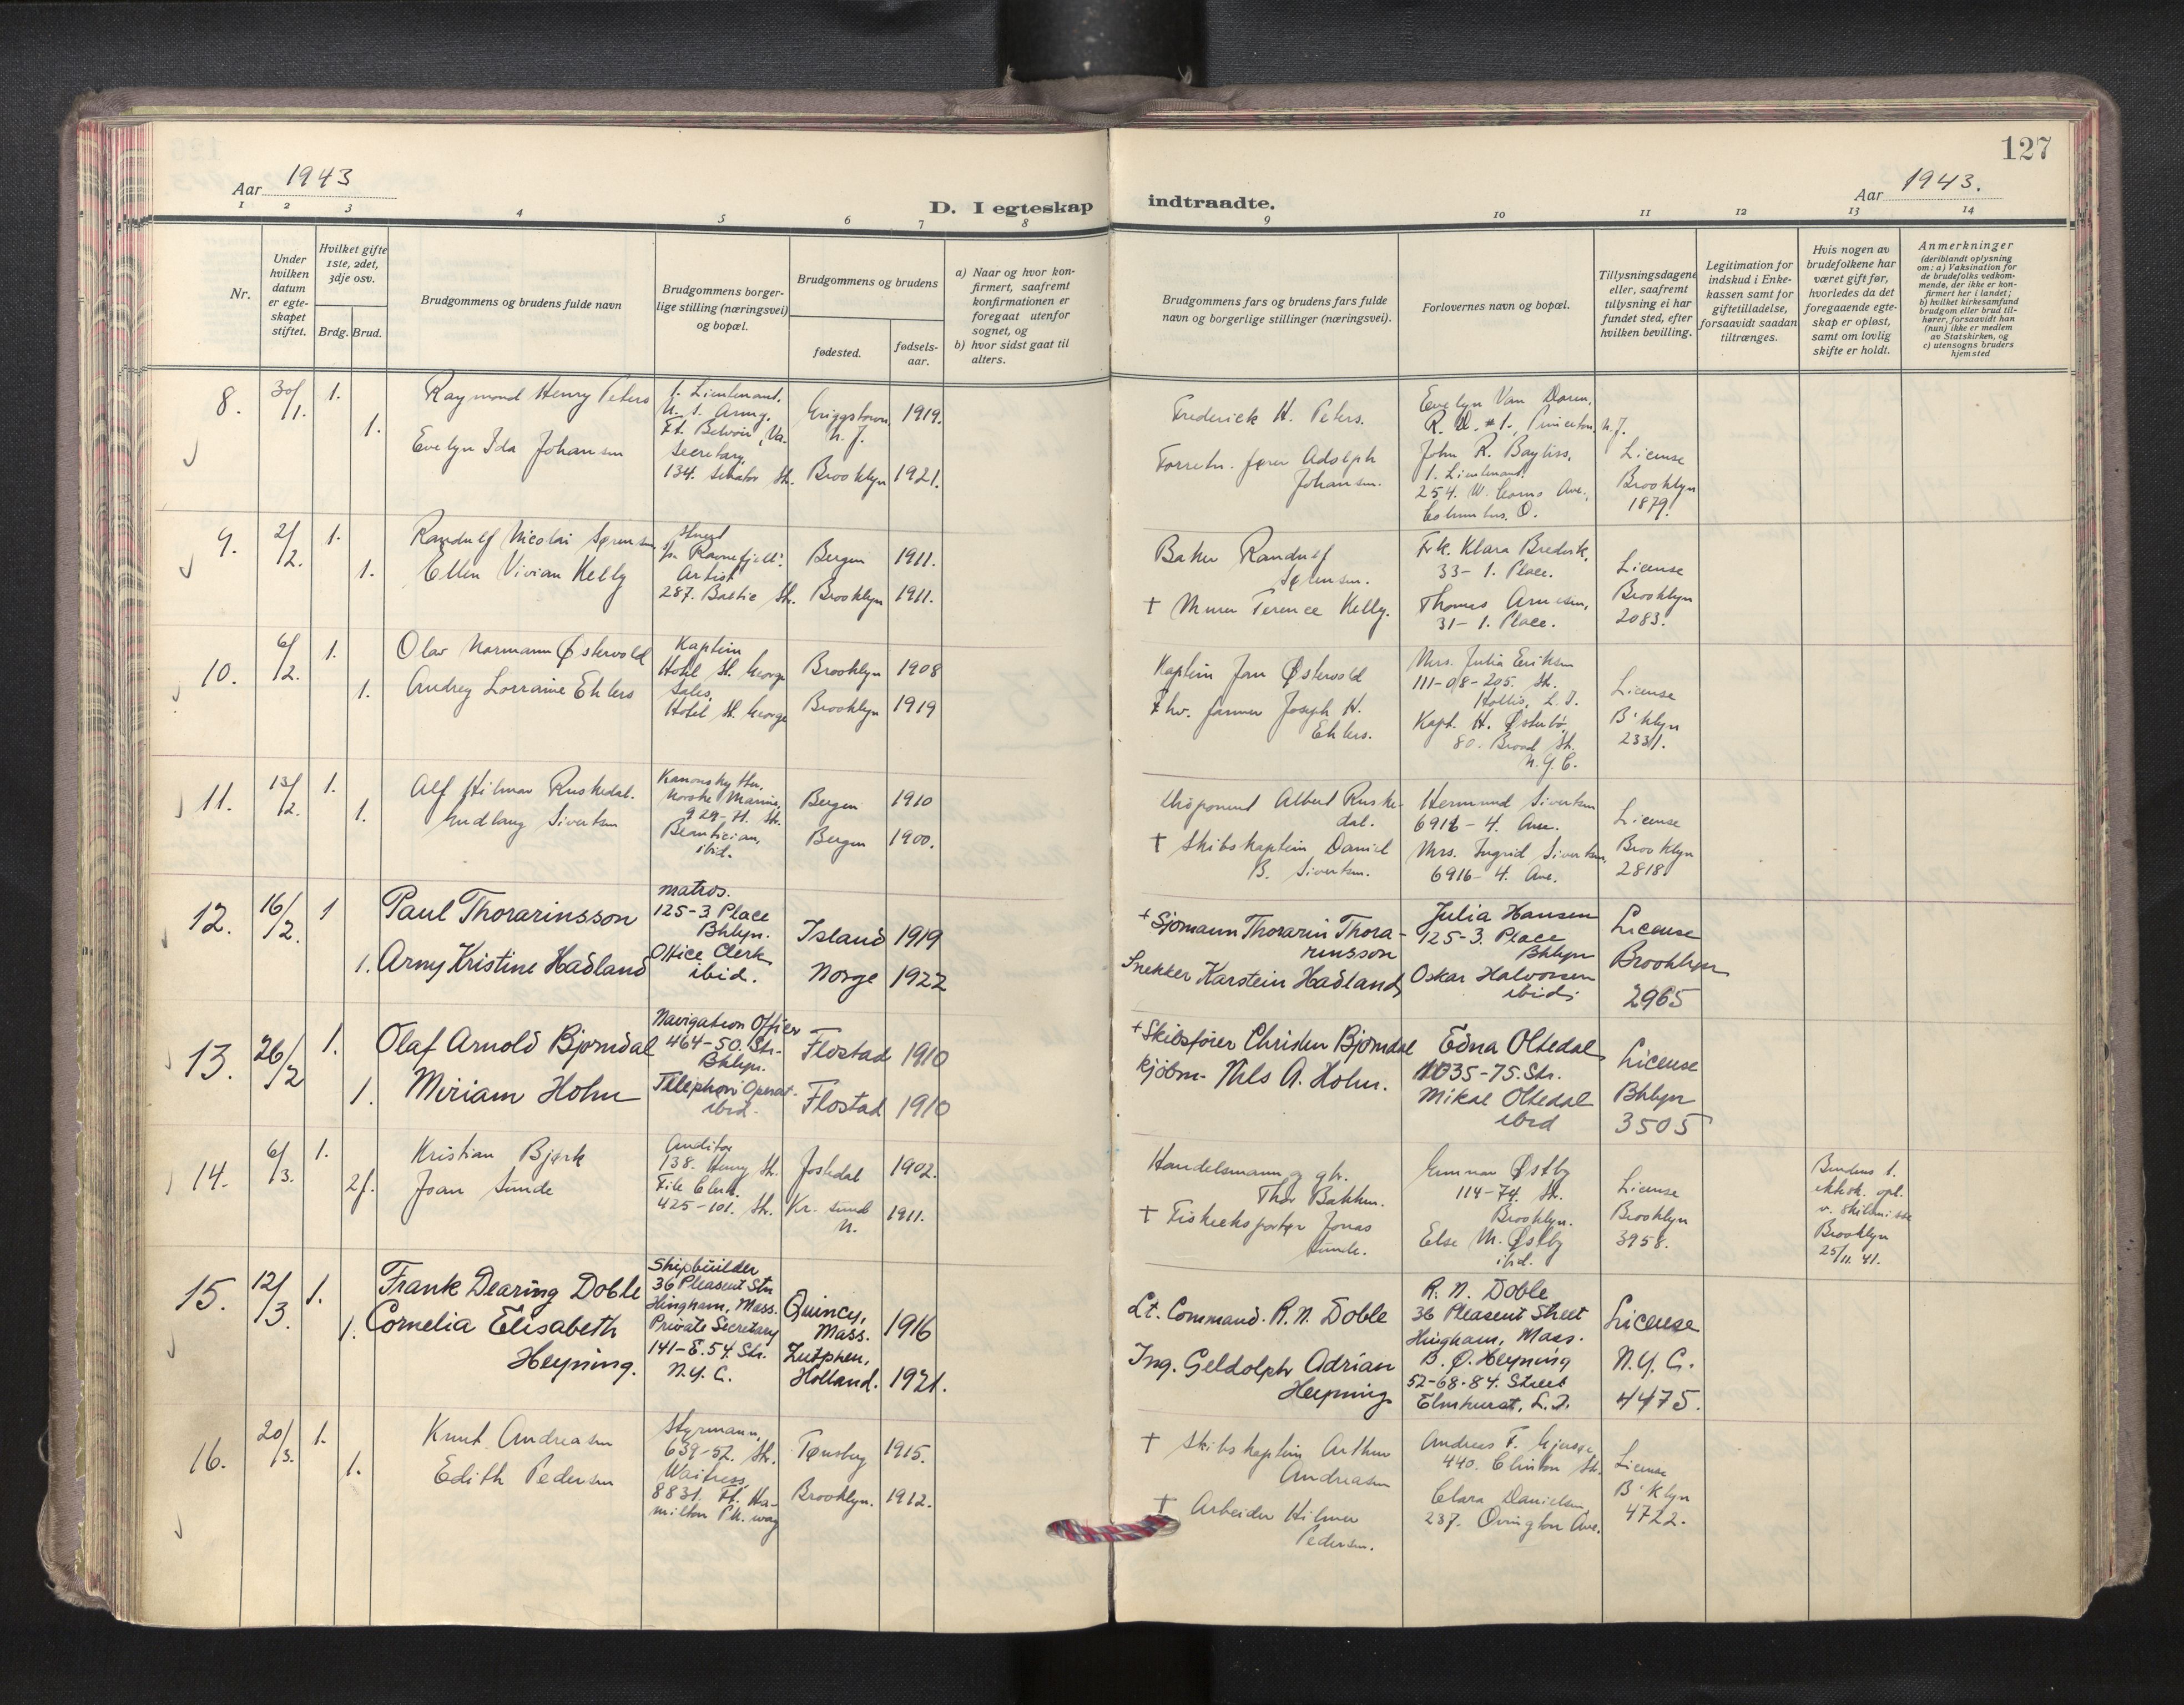 127
Aar 1943
Aar 1943.
D. I egteskap indtraadte.
1 2 3 4 5 6 7 8 9 10 11 12 13 14
Nr.
Under hvilken datum er egteskapet stiftet.
Hvilket gifte 1ste, 2det, 3dje osv.
Brdg. Brud.
Brudgommens og brudens fulde navn
Brudgommens borgerlige stilling (næringsvei) og bopæl.
Brudgommens og brudens
fødested.
fødselsaar.
a) Naar og hvor konfirmert, saafremt konfirmationen er foregaat utenfor sognet, og
b) hvor sidst gaat til alters.
Brudgommens fars og brudens fars fulde navn og borgerlige stillinger (næringsvei).
Forlovernes navn og bopæl.
Tillysningsdagene eller, saafremt tillysning ei har fundet sted, efter hvilken bevilling.
Legitimation for indskud i Enkekassen samt for giftetilladelse, forsaavidt saadan tiltrænges.
Hvis nogen av brudefolkene har været gift før, hvorledes da det foregaaende egteskap er opløst, samt om lovlig skifte er holdt.
Anmerkninger
(deriblandt oplysning om: a) Vaksination for de brudefolks vedkommende, der ikke er konfirmert her i landet; b) hvilket kirkesamfund brudgom eller brud tilhører, forsaavidt han (hun) ikke er medlem av Statskirken, og c) utensogns bruders hjemsted
8. 30/1. 1.
Raymond Henry Peters
1. Lieutenant.
U. S. Army.
Ft. Belvoir, Va.
Griggstown N. J. 1919.
1.
Evelyn Ida Johansen
Secretary,
134. Senator Str.
Brooklyn 1921.
Frederick H. Peters.
Adolph Johansen.
Evelyn Van Doren,
R. D. #1., Princeton, N. J.
John R. Bayliss,
1. Lieutenant.
Columbus. O.
License
Brooklyn
1879.
9. 2/2. 1.
Randulf Nicolai Sørensen
Stuert
Bergen 1911.
1.
Ellen Vivian Kelly
Artist
Brooklyn 1911.
Baker Randulf
Sørensen.
† Murer Terence Kelly.
Frk. Klara Bredvik,
33- 1. Place.
Thomas Arnesen,
31- 1. Place.
License
Brooklyn
2083.
10. 6/2. 1.
Olav Normann Østervold
Kaptein
Hotel St. George
Brooklyn 1908
1.
Audrey Lorraine Ehlers
Sales,
Hotel St. George
Brooklyn 1919
Kaptein Jon Østervold
Fhv. farmer Joseph H.
Ehlers.
Mrs. Julia Eriksen
111-08-205. Str.
Hollis, L. I.
Kapt. H. Østerbø,
80. Broad Str.
N. Y. C.
License
B'klyn
2331.
11. 13/2. 1.
Alf Hilmar Ruskedal.
Norske Marine,
Bergen 1910
1.
Gudlaug Sivertsen
Beautician,
ibid.
Bergen 1900.
Disponent Albert Ruskedal.
† Skibskaptein Daniel
B. Sivertsen.
Hermund Sivertsen
6916 - 4. Ave.
Mrs. Ingrid Sivertsen,
6916- 4. Ave.
License
Brooklyn
2818.
12. 16/2. 1
Paul Thorarinsson
matros.
125-3 Place
Bklyn.
Island 1919
1.
Arny Kristine Hadland
Office Clerk
ibid.
Norge 1922
+ Sjømann Thorarin Thorarinsson
Snekker Karstein Hadland
Julia Hansen
125-3. Place
Bklyn
Oskar Halvorsen
ibid.
License
Brooklyn
2965
13. 26/2 1.
Olaf Arnold Bjorndal
Navigation Officer
464-50. Str.
Bklyn.
Flostad 1910
1.
Miriam Holm
Telephon Operat.
ibid.
Flostad 1910
+ Skibsfører Christen Bjorndal
Kjöbm. Nils A. Holm.
Edna Oltedal
1035-75. Str.
Mikal Oltedal
ibid
License
Bklyn
3505
14. 6/3. 1.
Kristian Bjørk
Auditor
138. Henry Str.
Jostedal 1902.
2f.
Joan Sunde
File Clerk.
425-101. Str.
Kr. sund N. 1911.
Handelsmann og gbr.
Thor Bakken.
† Fiskeeksportør Jonas
Sunde.
Gunnar Østby
114-74. Str.
Brooklyn.
Else M. Østby
ibid.
License
Brooklyn
3958.
Brudens 1.
ektesk. opl.
v. skilsmisse
Brooklyn
25/11. 41.
15. 12/3. 1.
Frank Dearing Doble
Shipbuilder
36 Pleasent Str
Hingham, Mass.
Quincy, Mass. 1916
1.
Cornelia Elisabeth
Heyning.
Private Secretary
141-E. 54 Str.
N.Y.C.
Zutphen,
Holland. 1921.
Lt. Command. R. N. Doble
Ing. Geldolph Adrian
Heyning
R. N. Doble
36 Pleasent Street
Hingham, Mass.
B. O. Heyning
52-68-84. Street
Elmhurst, L. I.
License
N.Y.C.
4475.
16. 20/3. 1.
Knut Andreasen
Styrmann,
639-52. Str.
Tønsberg 1915.
1.
Edith Pedersen
Waitress,
8831. Ft. Hamilton Pk. way
Brooklyn. 1912.
† Skibskaptein Arthur
Andreasen
† Arbeider Hilmer
Pedersen.
440. Clinton Str.
Clara Danielsen,
237. Ovington Ave.
License
B'klyn
4722.